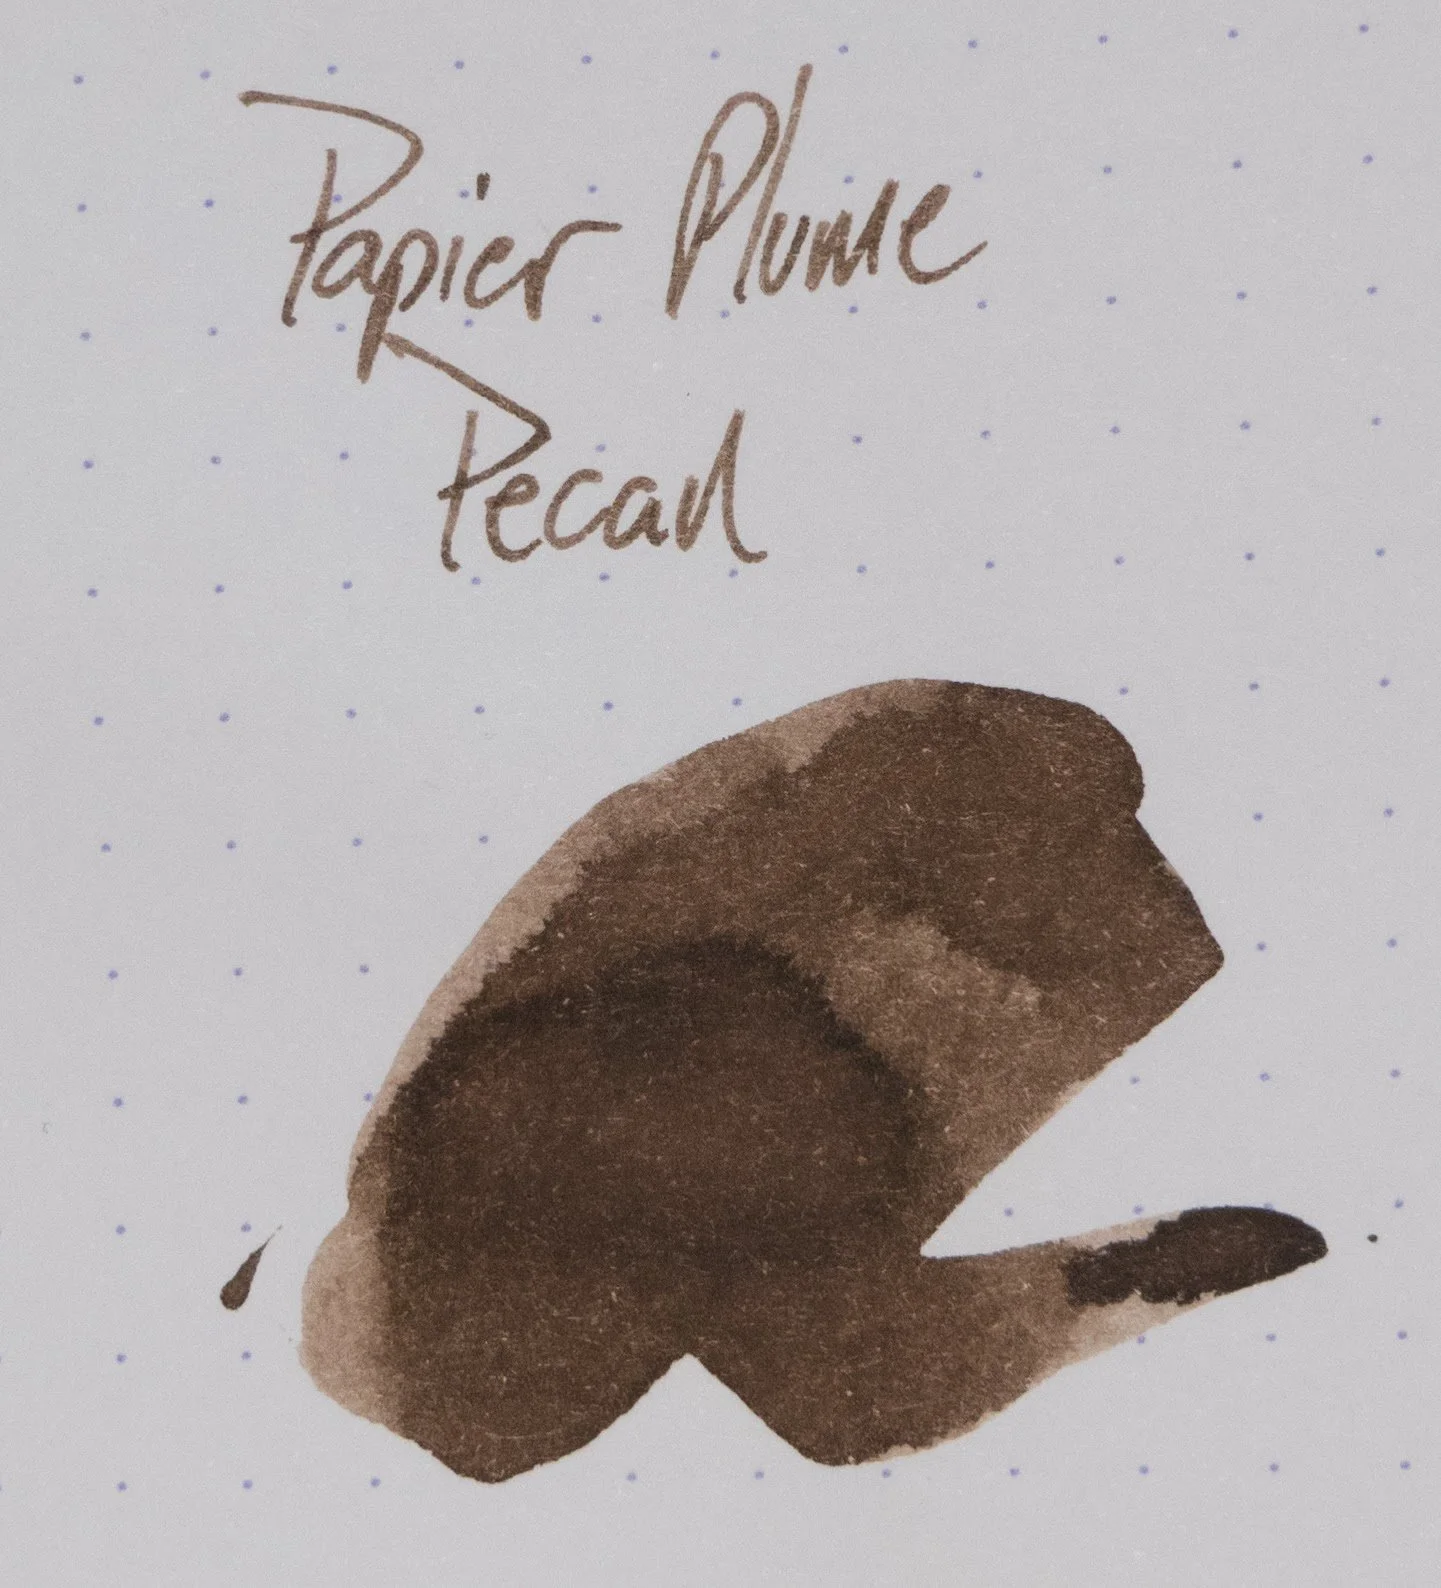 Papier Plume
Pecan